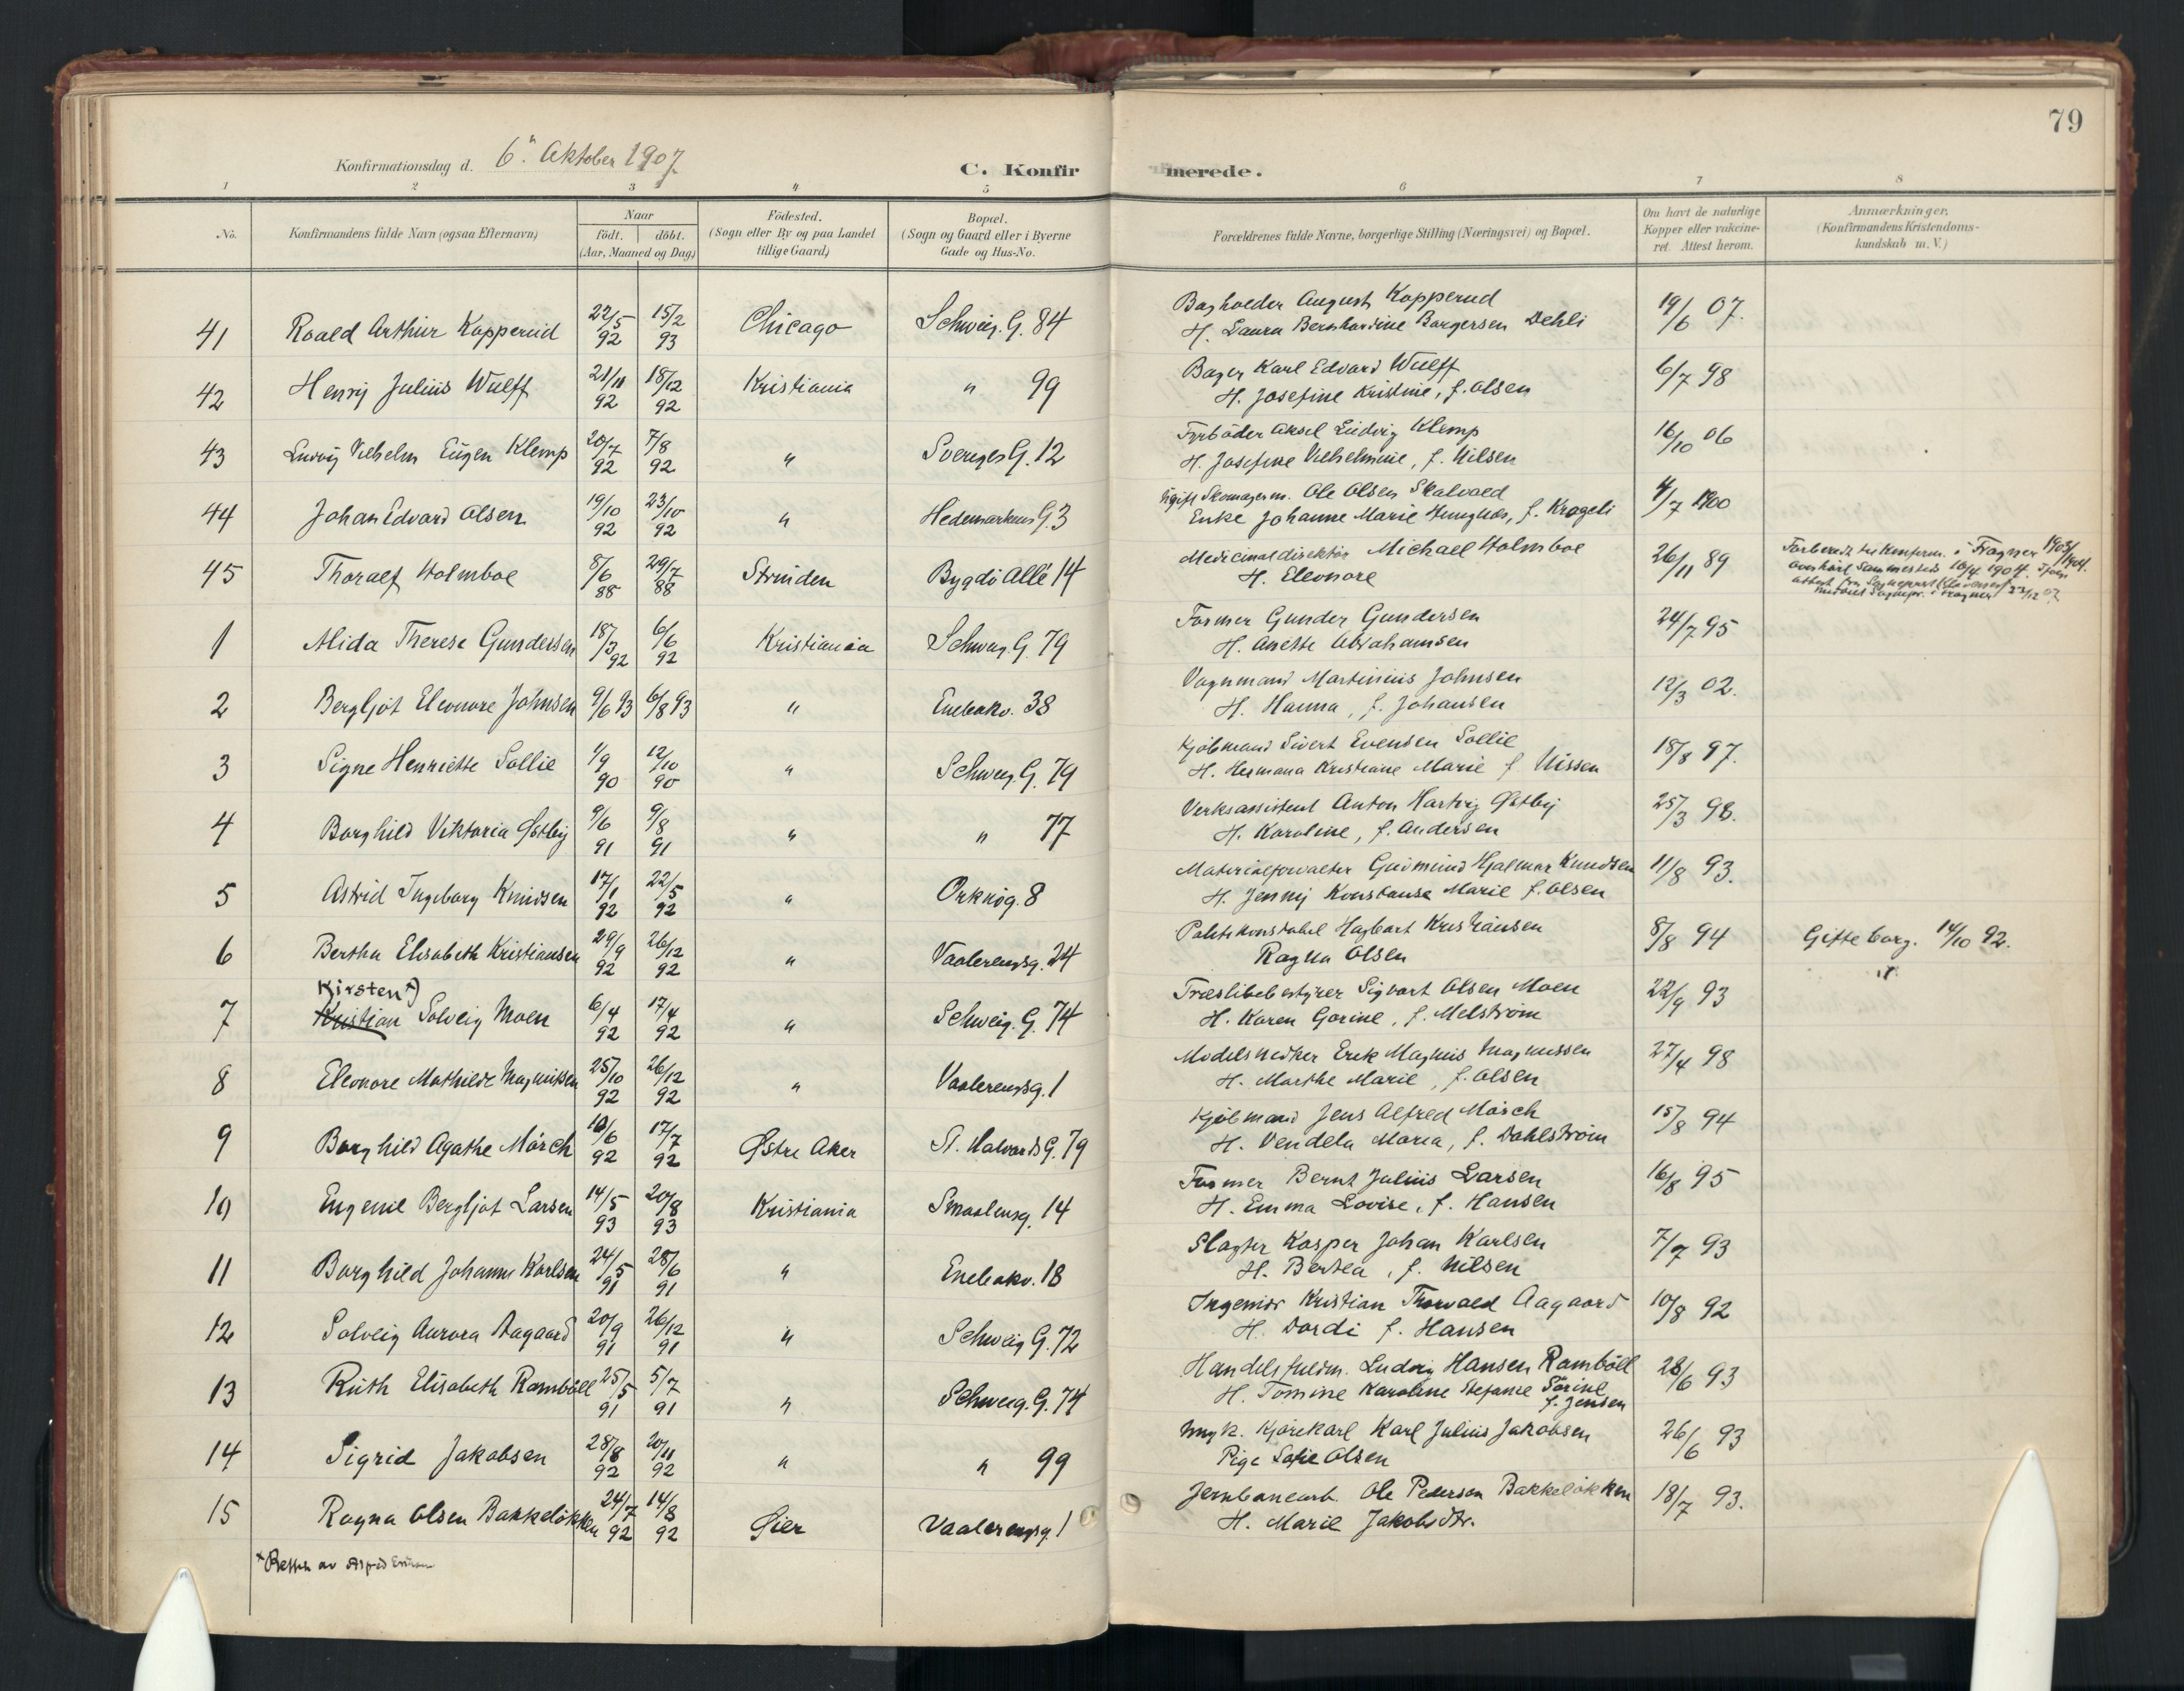 79
Konfirmationsdag d. 6" Oktober 1907
C. Konfirmerede.
1 2 3 4 5 6 7 8
No.
Konfirmandens fulde Navn (ogsaa Efternavn)
Naar
födt. döbt.
(Aar, Maaned og Dag)
Födested.
(Sogn eller By og paa Landet
tillige Gaard)
Bopæl.
(Sogn og Gaard eller i Byerne
Gade og Hus-No.
Forældrenes fulde Navne, borgerlige Stilling (Næringsvei) og Bopæl.
Om havt de naturlige
Kopper eller vakcine-
ret. Attest herom.
Anmærkninger.
(Konfirmandens Kristendoms-
kundskab m. V.)
41 Roald Arthur Kopperud 22/5 92 15/2 93 Chicago Schweig. G. 84 Bogholder August Kopperud 19/6 07.
H. Laura Bernhardine Borgersen Dehli
42 Henry Julius Wulff 21/11 92 18/12 92 Kristiania " 99 Bager Karl Edvard Wulff 6/7 98
H. Josefine Kristine, f. Olsen
43 Ludvig Vilhelm Eugen Klemp 20/7 92 7/8 92 " Sveriges G. 12 Fyrböder Aksel Ludvig Klemp 16/10 06
H. Josefine Vilhelmine, f. Nilsen
44 Johan Edvard Olsen 19/10 92 23/10 92 " Hedemarkens G. 3 Ugift Skomagerm. Ole Olsen Skalvold 4/7 1900
Enke Johanne Marie f. Krogeli
45 Thoralf Holmboe 8/6 88 29/7 88 Strinden Bygdö Allé 14 Medicinaldirektör Michael Holmboe 26/11 89
H. Eleonore
Forberedt til Konfirm. i Fragner 1903/1904.
overhört sammesteds 10/4 1904.
1 Alida Therese Gundersen 18/3 92 6/6 92 Kristiania Schweig. G. 79 Former Gunder Gundersen 24/7 95
H. Anette Abrahamsen
2 Bergljot Eleonore Johnsen 9/6 93 6/8 93 " Enebakv. 38 Vognmand Martinius Johnsen 12/3 02.
H. Hanna, f. Johansen
3 Signe Henriette Sollie 1/9 90 12/10 90 " Schweig G. 79 Kjöbmand Sivert Evensen Sollie 18/8 97.
H. Hermana Kristiane Marie f. Nissen
4 Borghild Viktoria Østby 9/6 91 9/8 91 " " 77 Verksassistent Anton Hartvig Østby 25/3 98.
H. Karoline, f. Andersen
5 Astrid Ingeborg Knudsen 17/1 92 22/5 92 " Orknög. 8 Materialforvalter Gudmund Hjalmar Knudsen 11/8 93.
H. Jenny Konstanse Marie f. Olsen
6 Bertha Elisabeth Kristiansen 29/9 92 26/12 92 " Vaalerengsg. 24 Politikonstabel Hagbart Kristiansen 8/8 94 Gifte borg. 14/10 92.
Ragna Olsen
Kirsten x)
7 Kristian Solveig Moen 6/4 92 17/4 92 " Schweig. G. 74 Træslibebestyrer Sigvart Olsen Moen 22/9 93
H. Karen Gorine, f. Melström
8 Eleonore Mathilde Magnussen 25/10 92 26/12 92 " Vaalerengsg. 1 Modelsnedker Erik Magnus Magnussen 27/4 98
H. Marthe Marie, f. Olsen
9 Borghild Agathe Mörch 10/6 92 17/7 92 Østre Aker St. Halvards G. 79 Kjöbmand Jens Alfred Mörch 15/8 94
H. Vendela Maria, f. Dahlström
10 Eugenie Bergljot Larsen 14/5 93 20/8 93 Kristiania Smaalensg. 14 Former Bernt Julius Larsen 16/8 95
H. Emma Lovise, f. Hansen
11 Borghild Johanne Karlsen 24/5 91 28/6 91 " Enebakv. 18 Slagter Kasper Johan Karlsen 7/7 93
H. Bertea, f. Nilsen
12 Solveig Aurora Aagaard 20/9 91 26/12 91 " Schweig G. 72 Ingeniör Kristian Thorvald Aagaard 10/8 92
H. Dordi f. Hansen
13 Ruth Elisabeth Romböll 25/5 91 5/7 91 " Schweig. G. 74 Handelsfuldm. Ludvig Hansen Romböll 28/6 93
H. Tomine Karoline Stefanie Sörine
f. Jensen
14 Sigrid Jakobsen 28/8 92 20/11 92 " " 99 Ungk. Kjörekarl Karl Julius Jakobsen 26/6 93
Pige Sofie Olsen
15 Ragna Olsen Bakkelökken 24/7 92 14/8 92 Øier Vaalerengsg. 1 Jernbanearb. Ole Pedersen Bakkelökken 18/7 93.
H. Marie Jakobsdtr.
x av